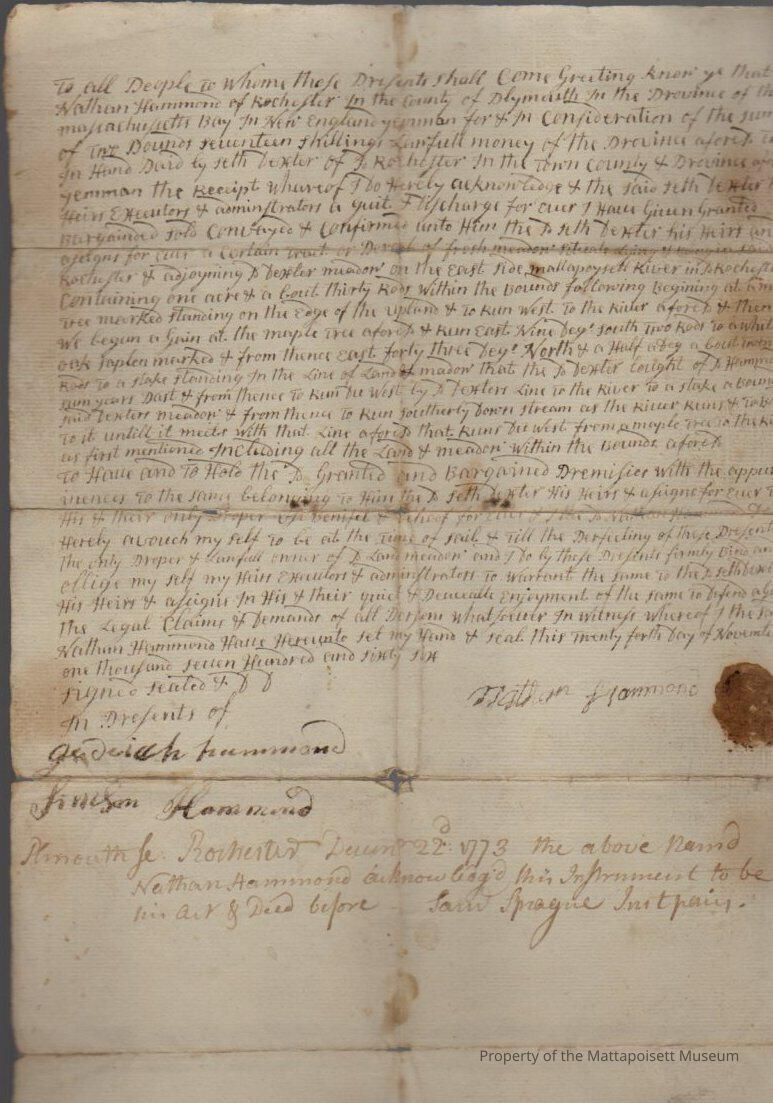 To all People to Whome these Presents shall Come Greeting know ye that
Nathan Hammond of Rochester In the County of Plymouth In the Province of the
massachusetts Bay In New England yeoman for & In Consideration of the sum
of Two Pounds seventeen shillings Lawfull money of the Province afores
In Hand Paid by seth Dexter of Rochester In the Town County & Province
yeoman the Receipt whareof I Do Hereby acknowledge & the said seth Dexter
Heirs Executors & adminstrators a quit & Discharge for ever I Have Given Granted
Bargained sold Conveyed & Confirmed unto Him the seth Dexter his Heirs an
asigns for Ever a Certain tract or Parcel of fresh meadow
Rochester & adjoyning Dexter meadow on the East side mattapoysett River in Rocheste
Containing one acre & a bout thirty Rods within the Bounds following Begining at a m
Tree marked standing on the Edge of the upland & To Run West To the River afores & then
We begun a Gain at the maple Tree afores & Run East Nine Degs south Two Rods To a whit
oak saplen marked & from thence East forty three Degs North & a Half a Deg a bout
Rods to a stake standing In the Line of Land & madow that the Dexter bought of Hammo
sum years Past & from thence To Run Du West by Dexters Line to the River to a stake a Boun
said Dexters meadow & from thence To Run southerly Down stream as the River Runs &
To it untill it meets with that Line afores that Runs Du West from a maple Tree to the
as first mentioned Including all the Land & meadow Within the Bounds afores
To Have and To Hold the Granted and Bargained Premisies with the appur
inences To the same belonging To Him the seth Dexter His Heirs & asigns for ever T
His & their only Proper use Benifit & Behoof for Ever I the Nathan
Hereby avouch my self To be at the Time of sail & Till the Perfecting of these Present
The only Proper & Lawfull owner of Land meadow and I Do by these Presents firmly Bind an
oblige my self my Heirs Executors & adminstrators To Warrant the same To the seth
His Heirs & asigns In His & their quiet & Peaceable Enjoyment of the same To Defend
the Legal Claims & Demands of all Persons whatsoever In Witness whereof I the sa
Nathan Hammond Have Hereunto set my Hand & seal this Twenty forth Day of Novembe
one thousand seven Hundred and sixty six
signed sealed & D D
In Presents of
Nathan Hammond
Gedeiah hammond
Simeon Hammond
Plimouth Sc. Rochester Decem 22d: 1773 the above Namd
Nathan Hammond acknowledg'd this Instrument to be
his Act & Deed before Saml Sprague Just pacis.
Property of the Mattapoisett Museum